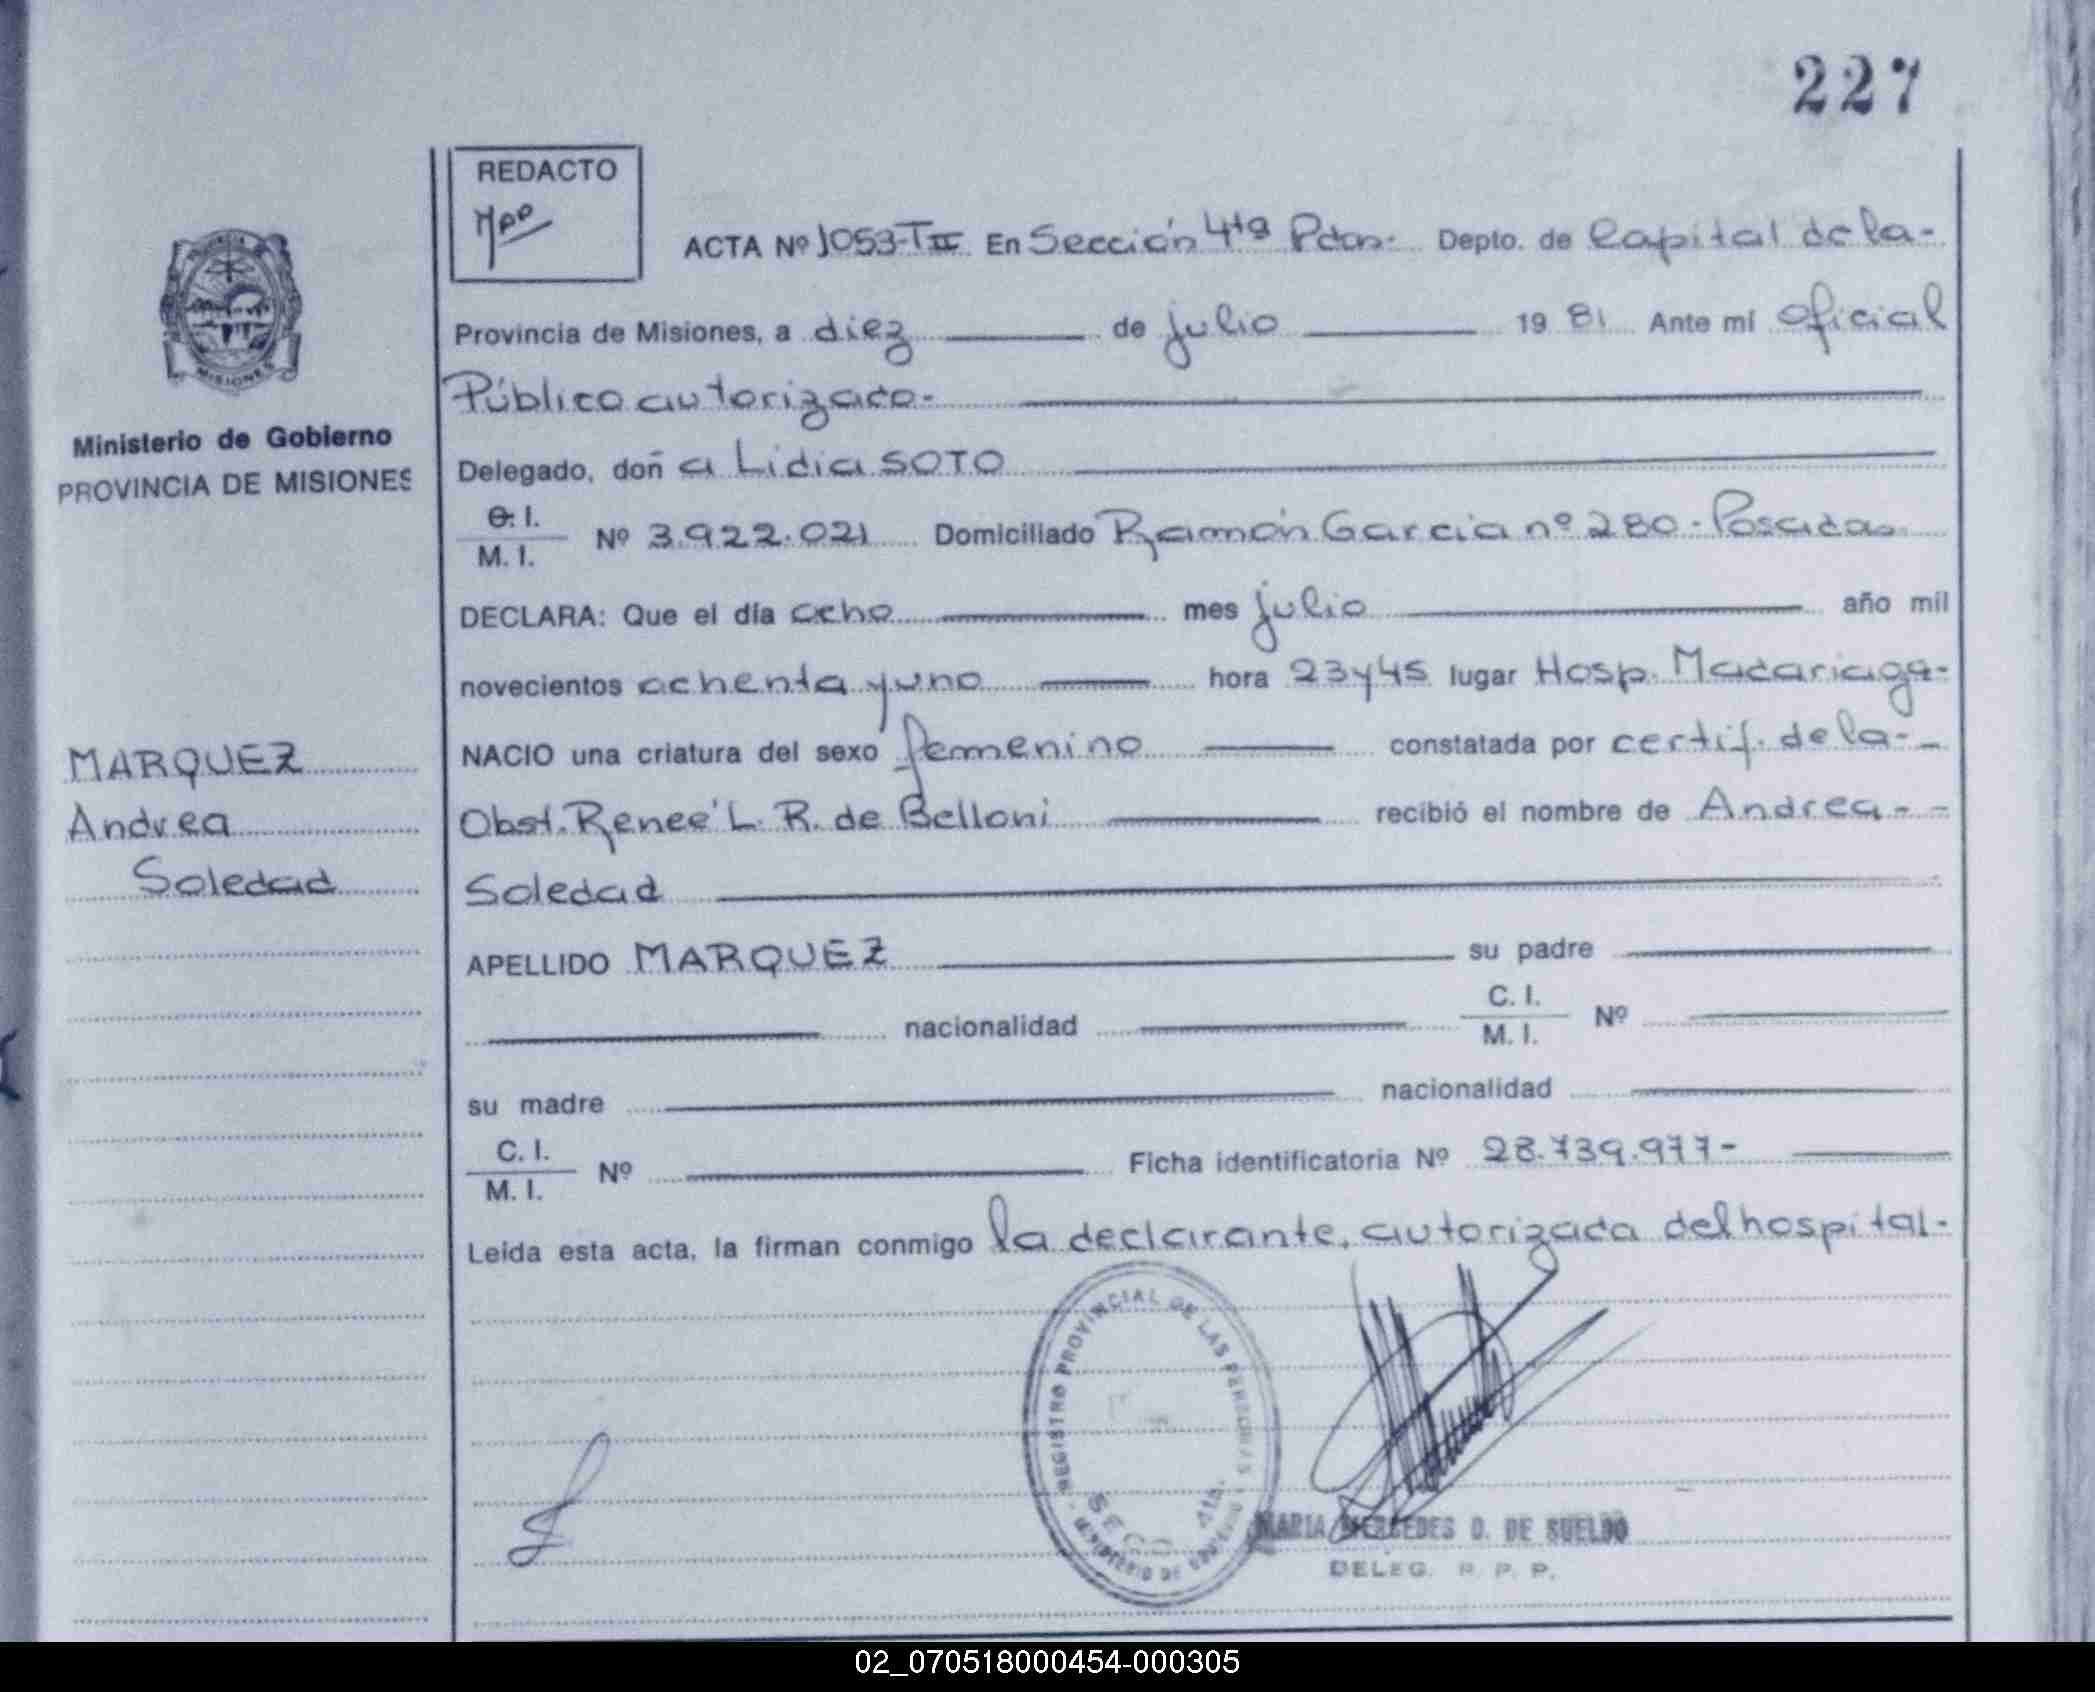 227
REDACTO
ACTA Nº 1053-TII En Sección 4ta Pdas. Depto. de Capital de la-
Provincia de Misiones, a diez de julio 1981 Ante mí oficial
Público autorizado-
Delegado, doña Lidia SOTO
C. I.
M. I. Nº 3.922.021 Domiciliado Ramón Garcia nº 280-Posadas
DECLARA: Que el día ocho mes julio año mil
novecientos ochenta y uno hora 23 y 45 lugar Hosp. Madariaga-
NACIO una criatura del sexo femenino constatada por certif. de la-
Obst. Reneé L. R. de Belloni recibió el nombre de Andrea--
Soledad
APELLIDO MARQUEZ su padre
nacionalidad C. I.
M. I. Nº
su madre nacionalidad
C. I.
M. I. Nº Ficha identificatoria Nº 28.739.977-
Leída esta acta, la firman conmigo la declarante, autorizada del hospital-
MISIONES
Ministerio de Gobierno
PROVINCIA DE MISIONES
MARQUEZ
Andrea
Soledad
REGISTRO PROVINCIAL DE LAS PERSONAS
MINISTERIO DE GOBIERNO
SECC 4ta.
MARIA MERCEDES O. DE SUELDO
DELEG. R. P. P.
02_070518000454-000305